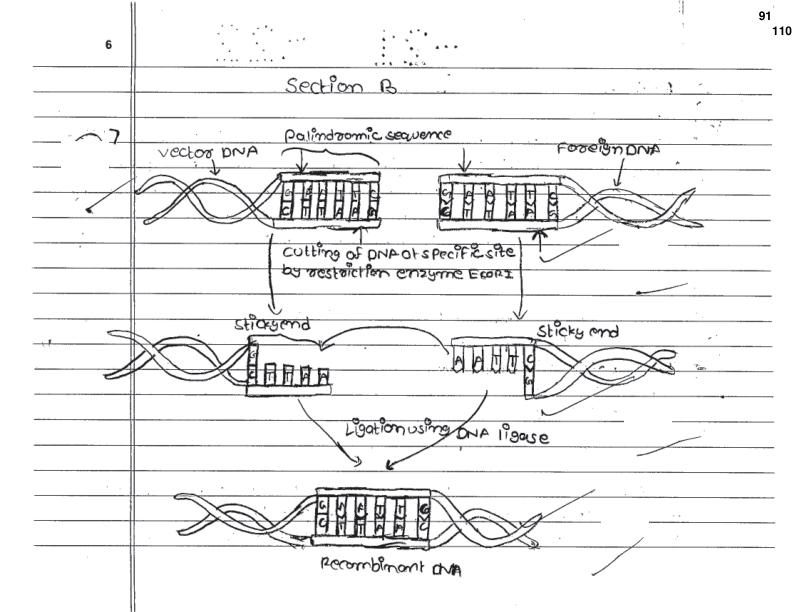 91
110
6
Section B
7
Palindromic sequence
vector DNA
Foreign DNA
G A A T T C
C T T A A G
G A A T T C
C T T A A G
Cutting of DNA at specific site
by restriction enzyme EcoRI
Sticky end
Sticky end
G
C T T A A
A A T T C
G
Ligation using DNA ligase
G A A T T C
C T T A A
Recombinant DNA